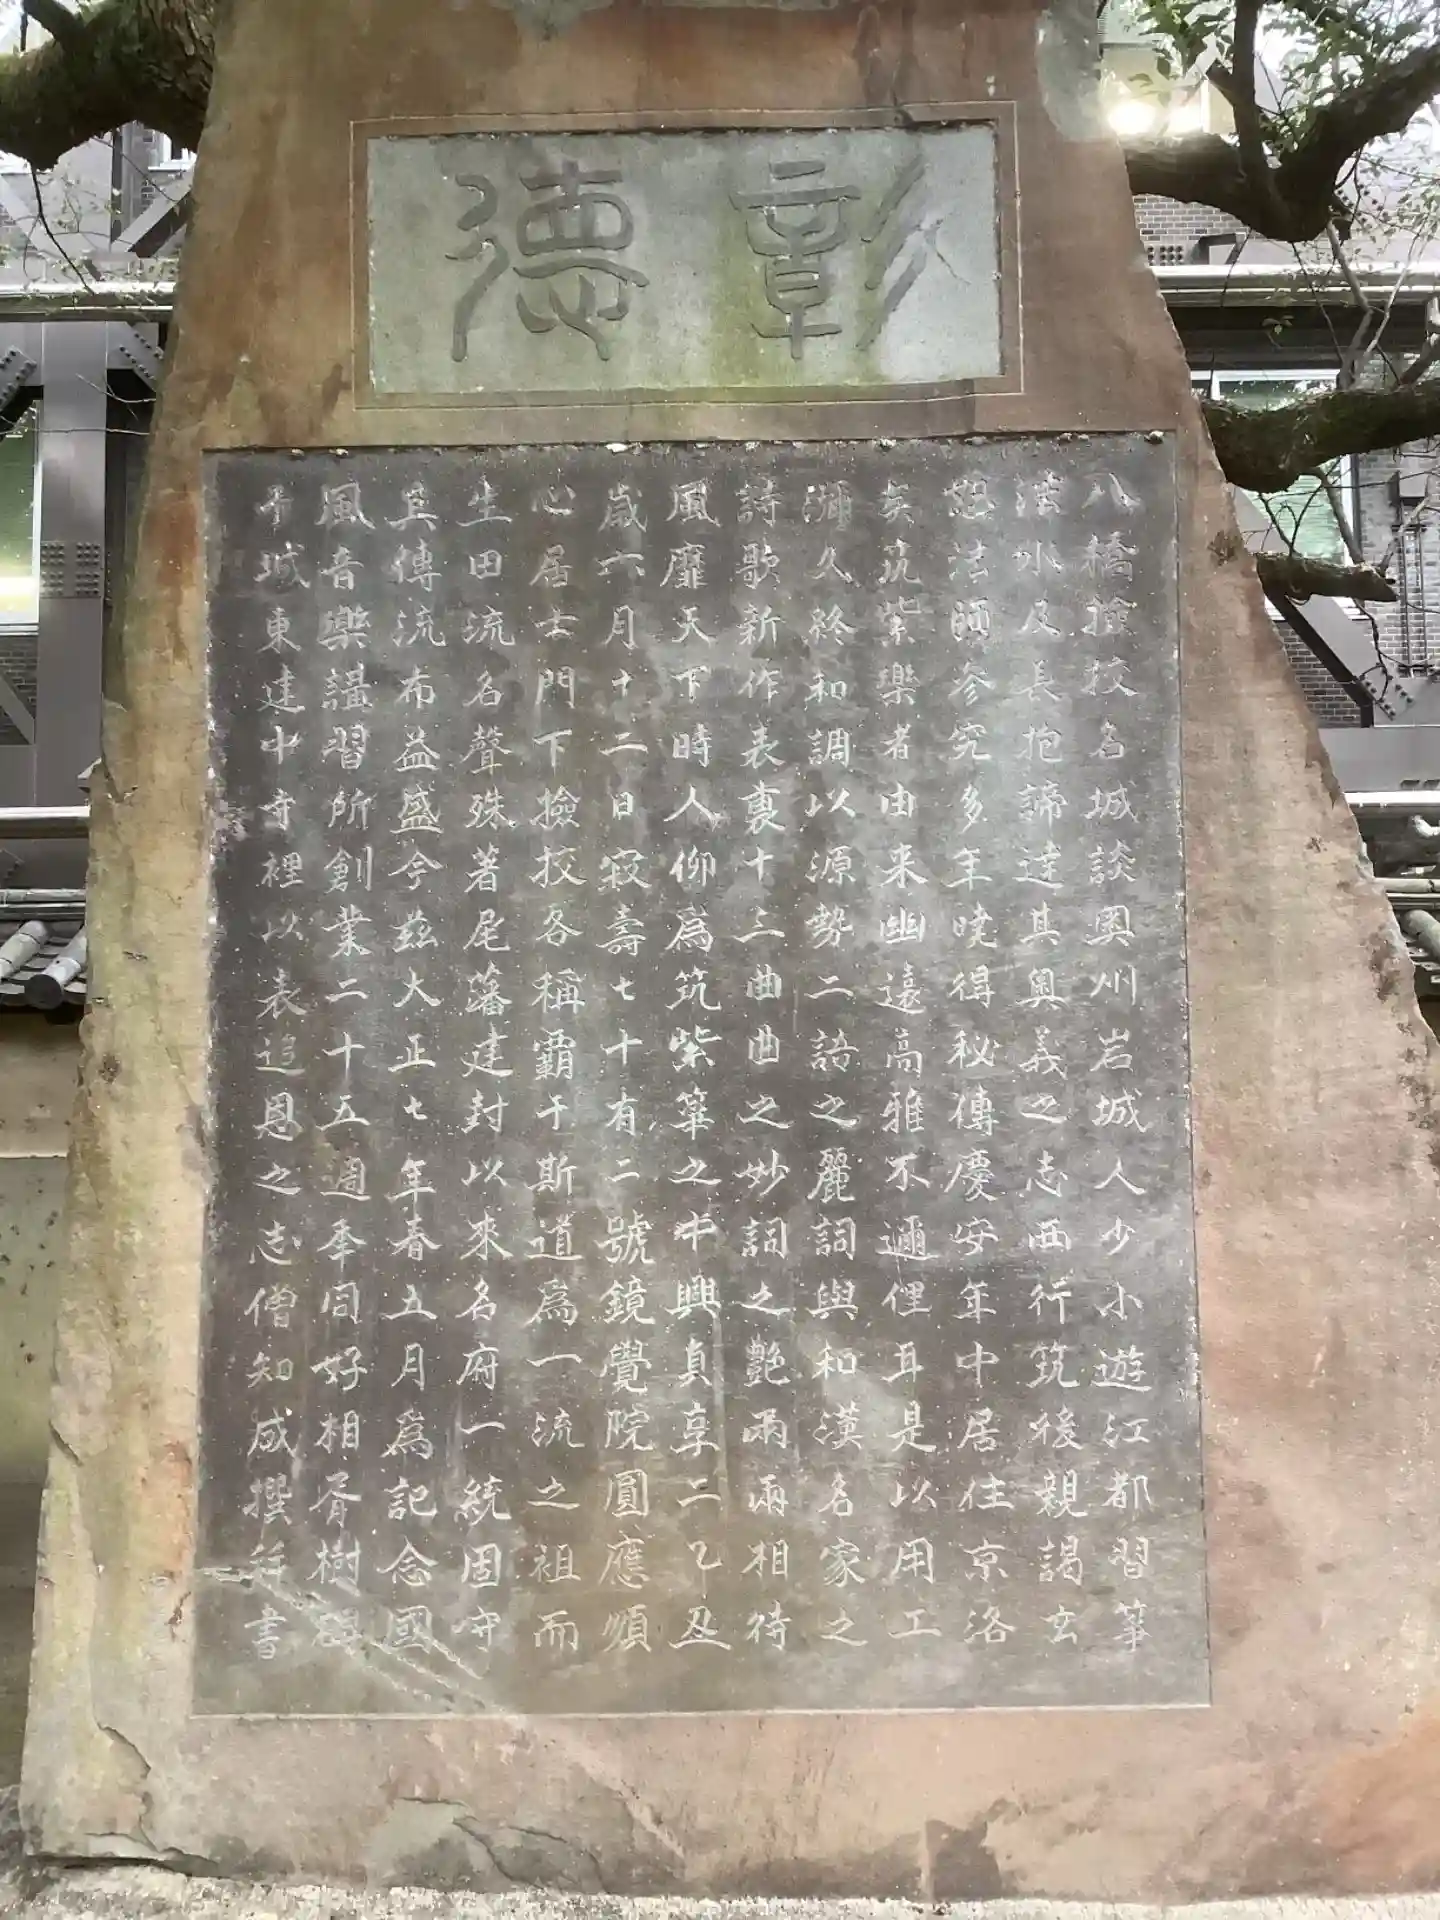 彰德
八橋撿挍名城談奧州岩城人少小遊江都習箏
法水及長抱諦達其奥義之志西行筑後親謁玄
恕法師参究多年暁得秘傳慶安年中居住京洛
矣茿紫樂者由来幽遠高雅不邇俚耳是以用工
瀰久終和調以源勢二語之麗詞與和漢名家之
詩歌新作表裏十三曲曲之妙詞之艶兩兩相待
風靡天下時人仰爲筑紫箏之中興貞享二乙丑
歳六月十二日寂壽七十有二號鏡覺院圓應順
心居士門下撿挍各稱霸于斯道爲一流之祖而
生田流名聲殊著尾藩建封以來名府一統固守
其傳流布益盛今茲大正七年春五月爲記念國
風音樂講習所創業二十五週年同好相胥樹碑
于城東建中寺裡以表追恩之志僧知咸撰幷書